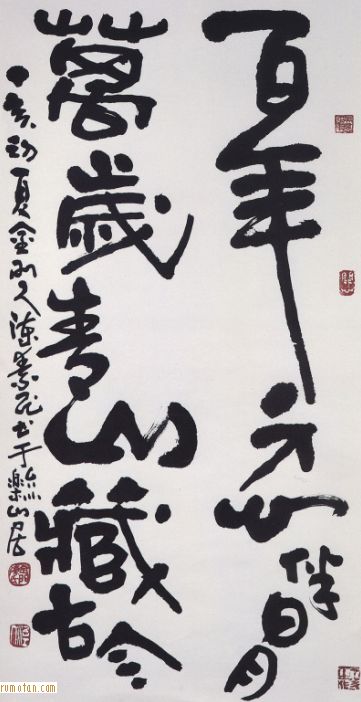 百年心伴日月
萬歲青山藏古今
丁亥初夏金人陳書于樂山居
rumotan.com